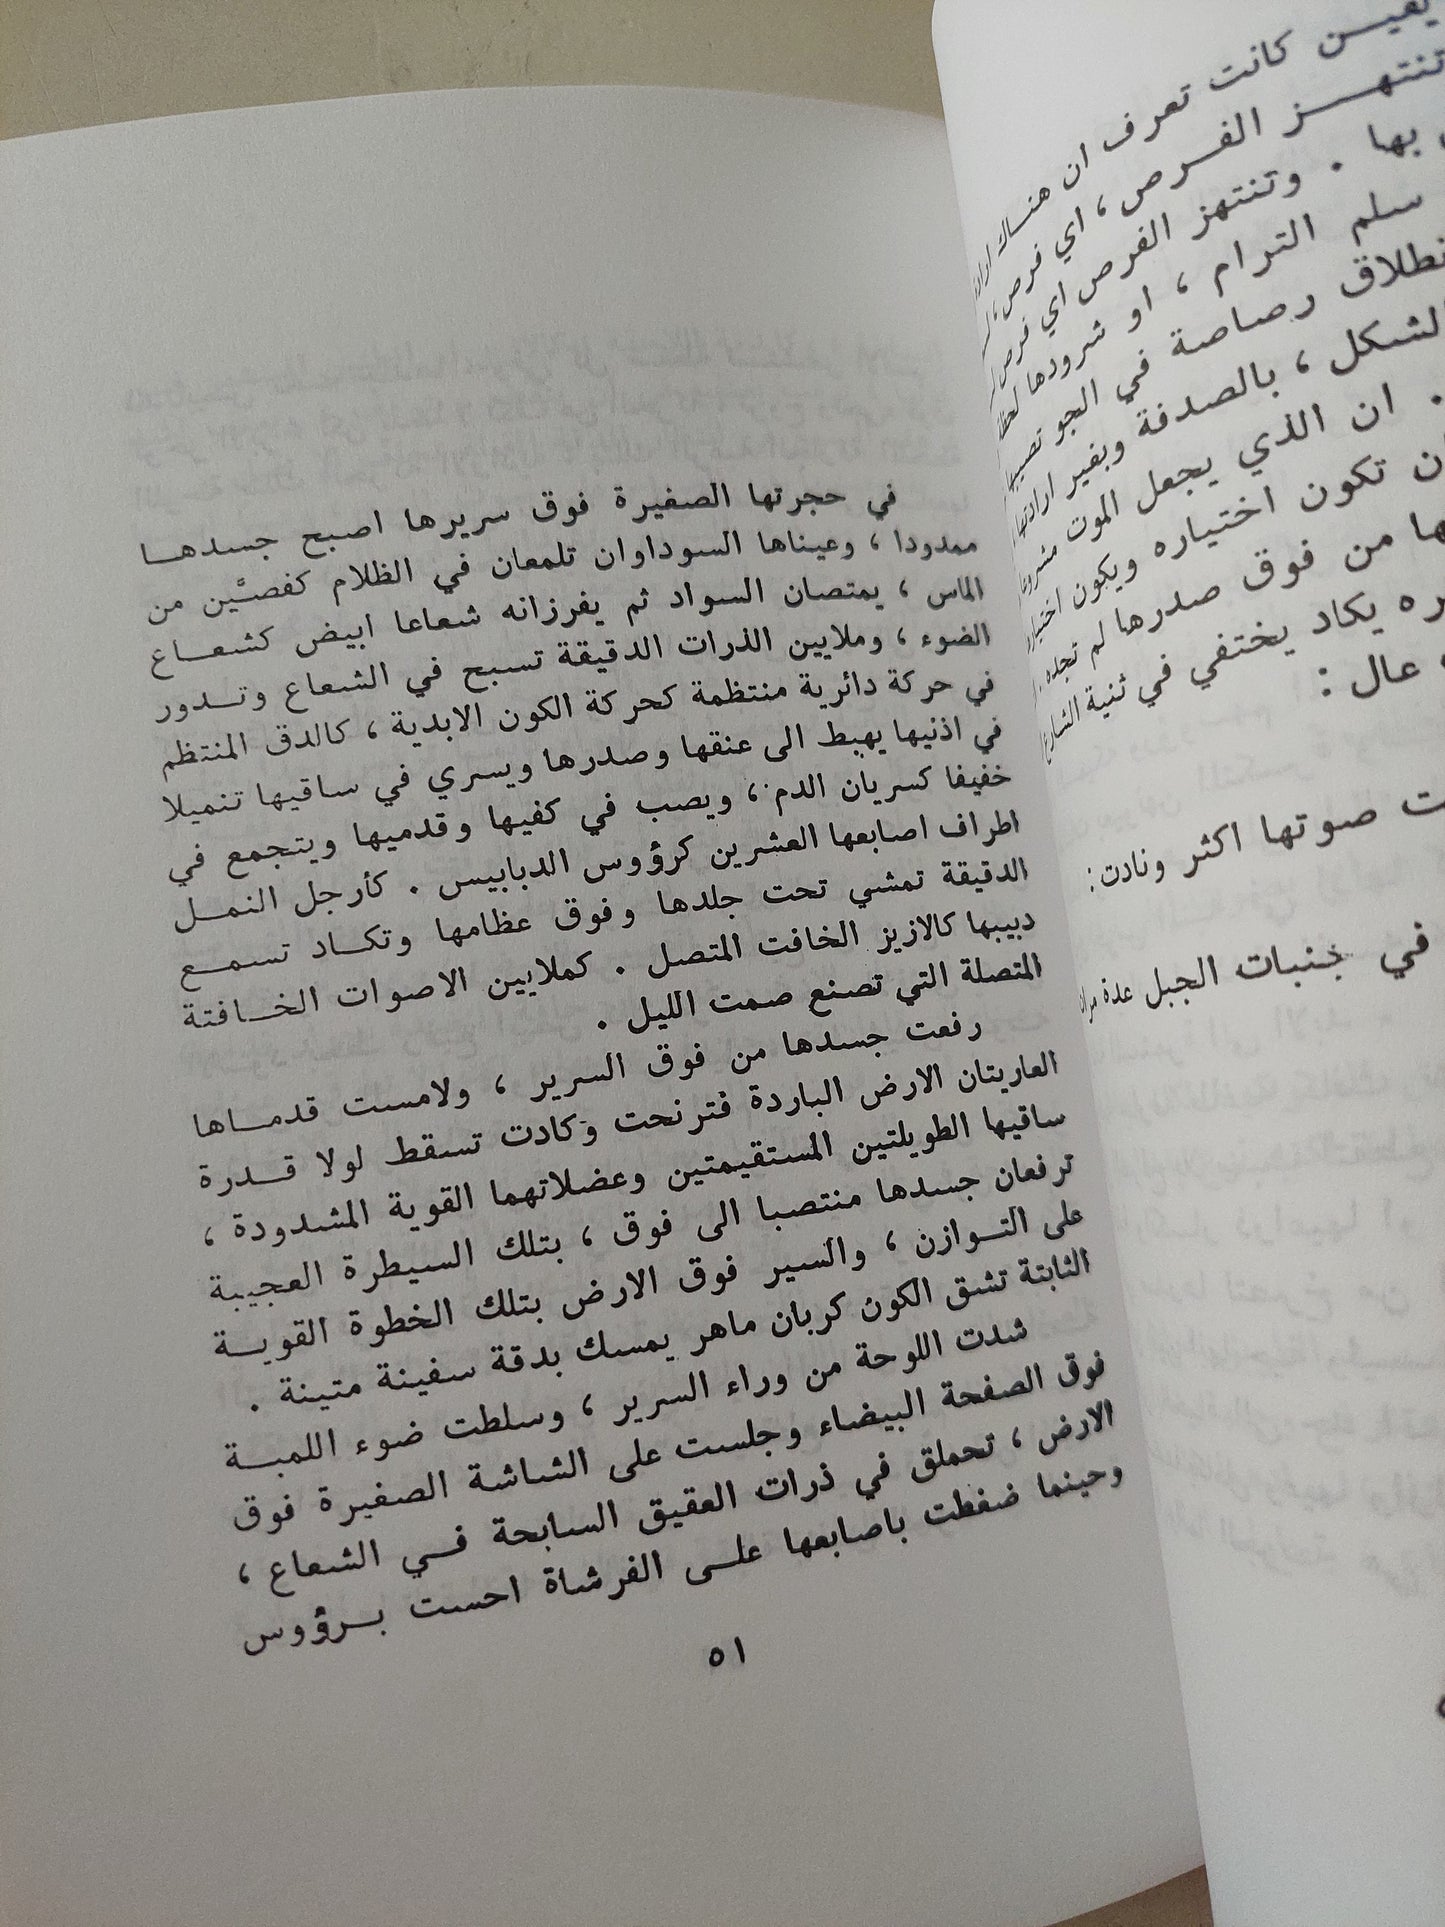 يقين كانت تعرف ان هناك
تنتهز الفرص ، اي فرص
بها . وتنتهز الفرص اي فرص
سلم الترام ، او شرودها
رصاصة في الجو
الشكل ، بالصدفة وبغير ارادتها
. ان الذي يجعل الموت
تكون اختياره ويكون
من فوق صدرها لم تجده .
يكاد يختفي في ثنية الشارع
عال :
صوتها اكثر ونادت :
في جنبات الجبل عدة
في حجرتها الصغيرة فوق سريرها اصبح جسدهــا
ممدودا ، وعيناها السوداوان تلمعان في الظلام كفصتين من
الماس ، يمتصان السواد ثم يفرزانه شعاعا ابيض كشعــاع
الضوء ، وملايين الذرات الدقيقة تسبح في الشعاع وتــدور
في حركة دائرية منتظمة كحركة الكون الابدية ، كالدق المنتظم
في اذنيها يهبط الى عنقها وصدرها ويسري في ساقيها تنميلا
خفيفا كسريان الدم ، ويصب في كفيها وقدميها ويتجمع في
اطراف اصابعها العشرين كرؤوس الدبابيس . كأرجل النمــل
الدقيقة تمشي تحت جلدها وفوق عظامها وتكــاد تسمــع
دبيبها كالازيز الخافت المتصل . كملايين الاصوات الخــافتة
المتصلة التي تصنع صمت الليل .
رفعت جسدها من فوق السرير ، ولامست قدمــاها
العاريتان الارض الباردة فترنحت وكادت تسقط لولا قــدرة
ساقيها الطويلتين المستقيمتين وعضلاتهما القوية المشدودة ،
ترفعان جسدها منتصبا الى فوق ، بتلك السيطرة العجيبة
على التــوازن ، والسير فوق الارض بتلك الخطوة القويــة
الثابتة تشق الكون كربان ماهر يمسك بدقة سفينة متينة .
شدت اللوحة من وراء السرير ، وسلطت ضوء اللمبــة
فوق الصفحة البيضاء وجلست على الشاشة الصغيرة فوق
الارض ، تحملق في ذرات العقيق السابحة فــي الشعاع ،
وحينما ضغطت باصابعها علــى الفرشاة احست بــرؤوس
٥١